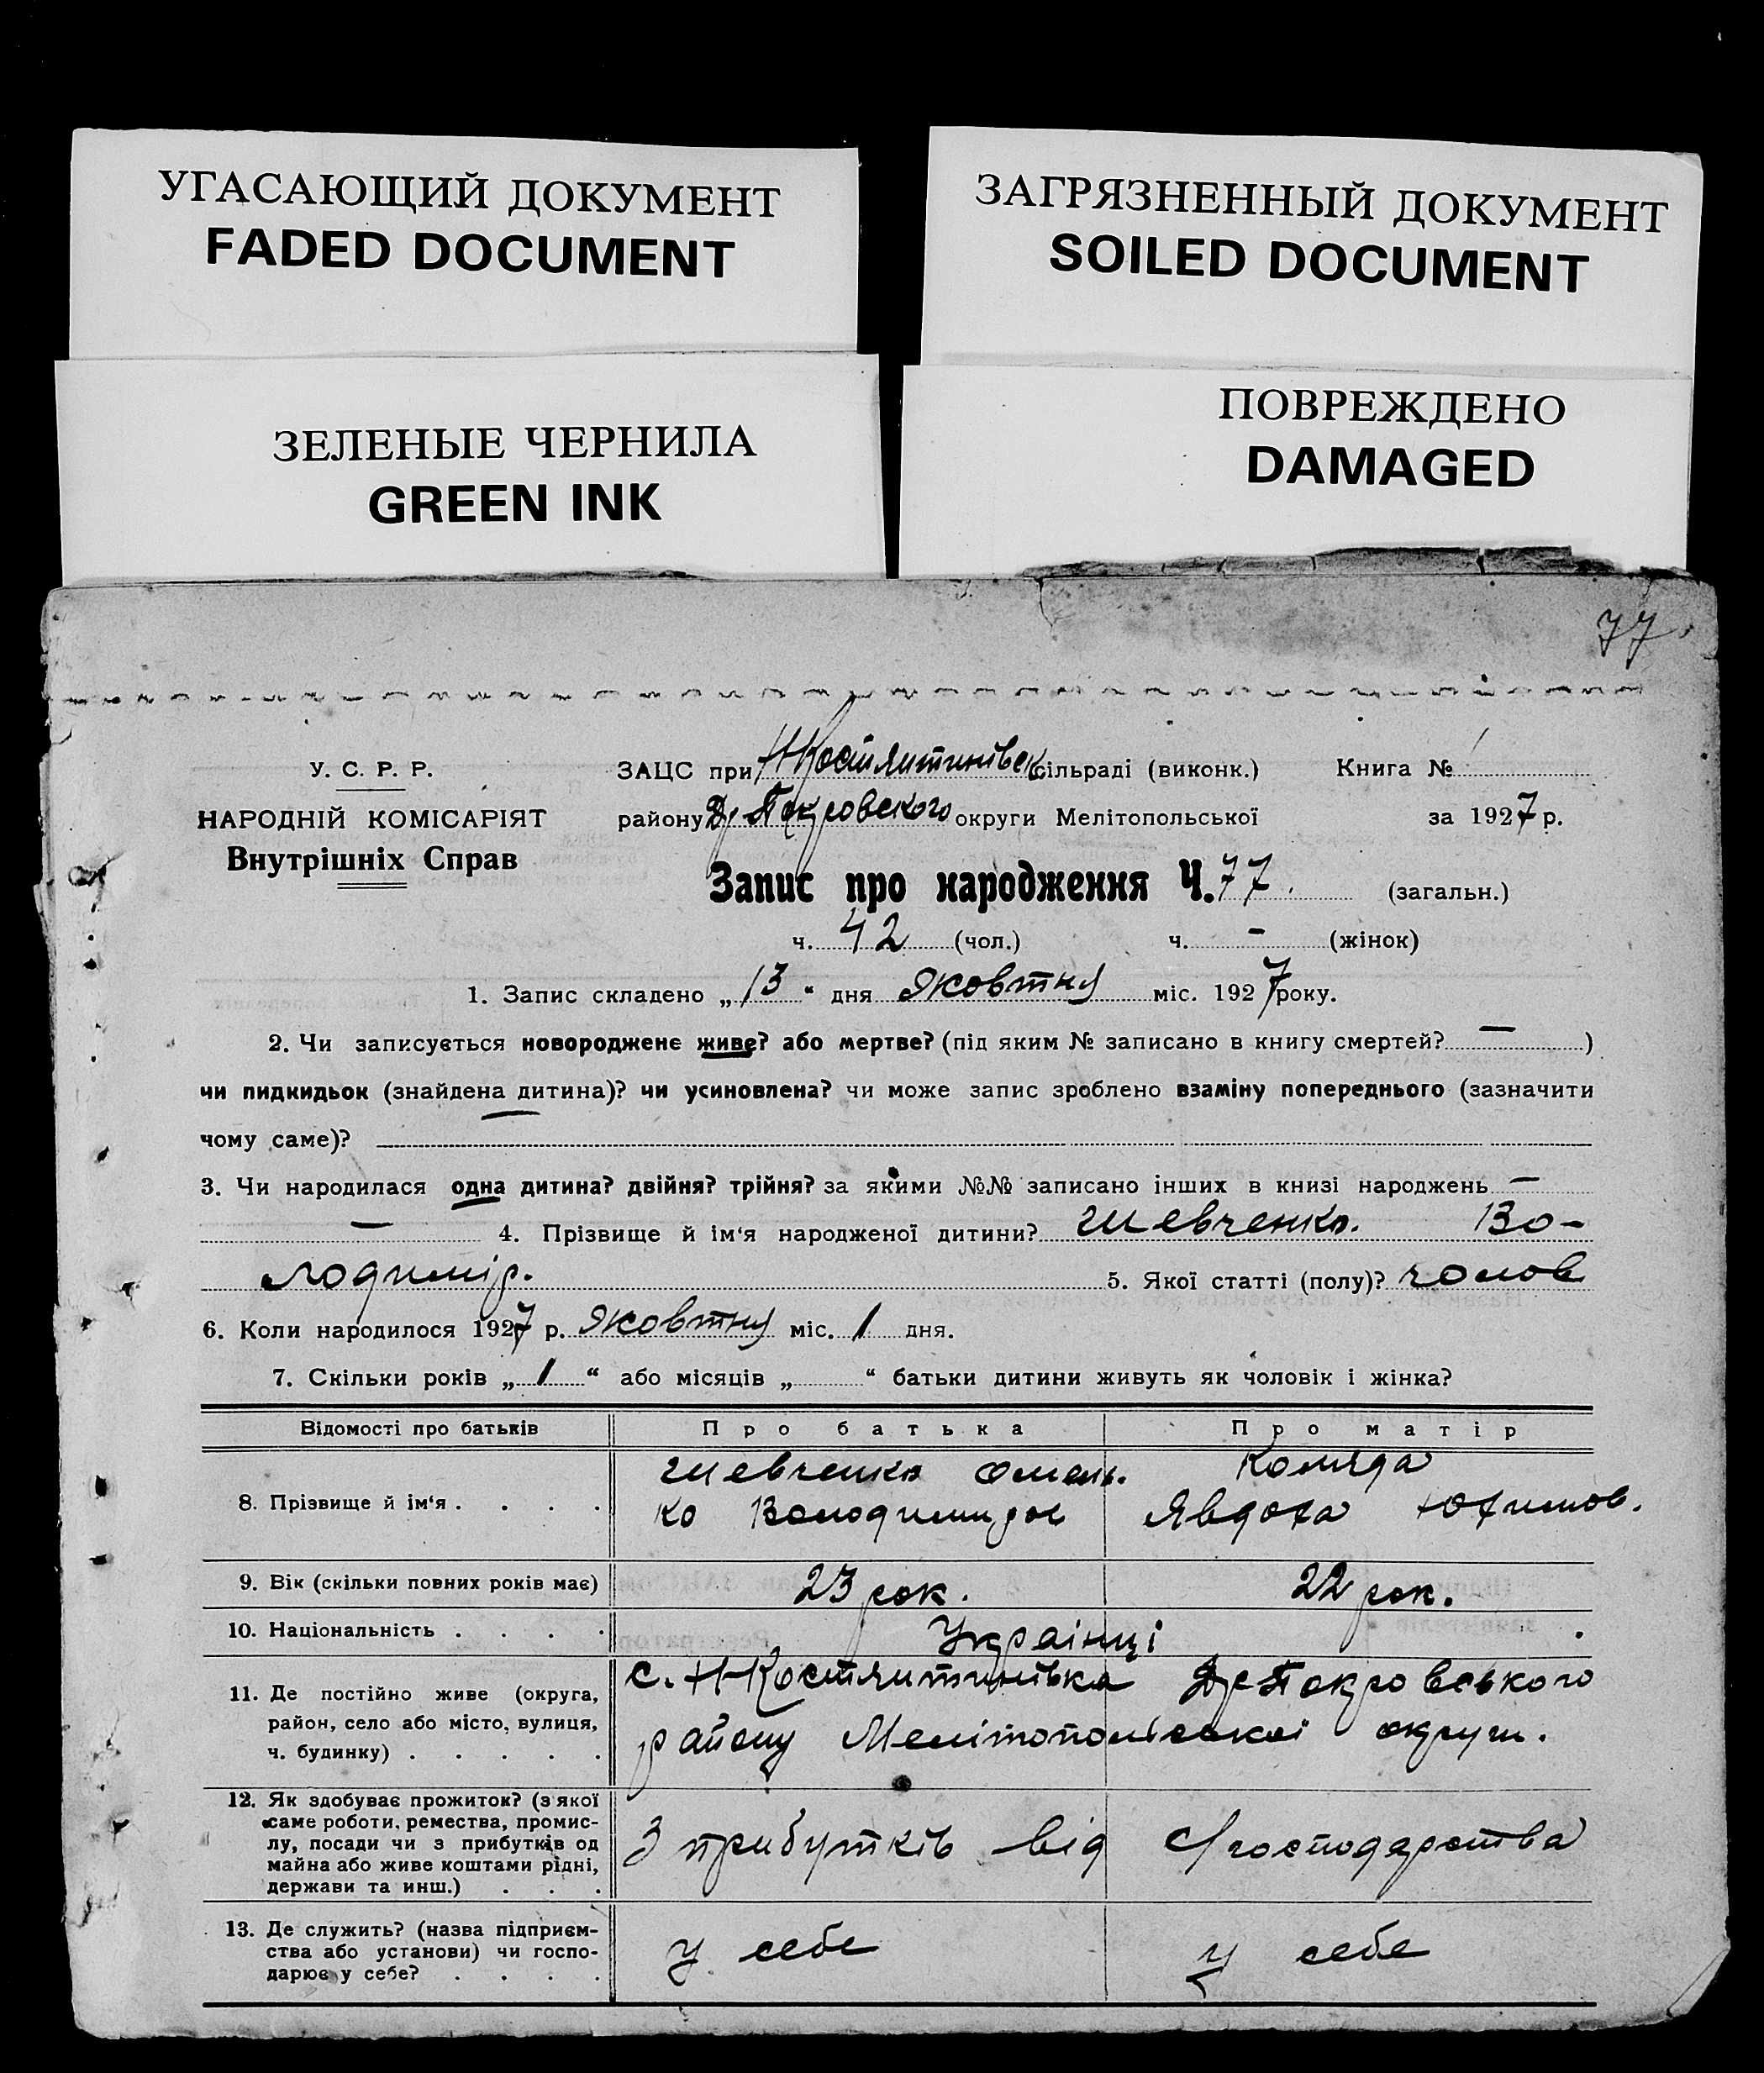 УГАСАЮЩИЙ ДОКУМЕНТ
FADED DOCUMENT
ЗАГРЯЗНЕННЫЙ ДОКУМЕНТ
SOILED DOCUMENT
ЗЕЛЕНЫЕ ЧЕРНИЛА
GREEN INK
ПОВРЕЖДЕНО
DAMAGED
77
У. С. Р. Р.
НАРОДНІЙ КОМІСАРІЯТ
Внутрішніх Справ
ЗАЦС при сільраді (виконк.) Книга №
району Покровского округи Мелітопольської за 1927 р.
Запис про народження Ч. 77. (загальн.)
ч. 42 (чол.) ч. - (жінок)
1. Запис складено „13“ дня Жовтня міс. 1927 року.
2. Чи записується новороджене живе? або мертве? (під яким № записано в книгу смертей? — )
чи пидкидьок (знайдена дитина)? чи усиновлена? чи може запис зроблено взаміну попереднього (зазначити
чому саме)?
3. Чи народилася одна дитина? двійня? трійня? за якими №№ записано інших в книзі народжень —
— 4. Прізвище й ім'я народженої дитини? Шевченко. Во-
лодимір. 5. Якої статті (полу)? чолов
6. Коли народилося 1927 р. Жовтня міс. 1 дня.
7. Скільки років „1“ або місяців „ “ батьки дитини живуть як чоловік і жінка?
Відомості про батьків Про батька Про матір
8. Прізвище й ім'я . . . .
Шевченко Омель. Коляда
ко Володимиров Явдоха Юхимов.
9. Вік (скільки повних років має) 23 рок. 22 рок.
10. Національність . . . . Українці
11. Де постійно живе (округа,
район, село або місто, вулиця,
ч. будинку) . . . . .
с. Н Костянтинівка Покровського
району Мелітопольської округи.
12. Як здобуває прожиток? (з якої
саме роботи, ремества, промис-
лу, посади чи з прибутків од
майна або живе коштами рідні,
держави та инш.) . . .
З прибутків від С/господарства
13. Де служить? (назва підприєм-
ства або установи) чи госпо-
дарює у себе? . . . .
у себе у себе